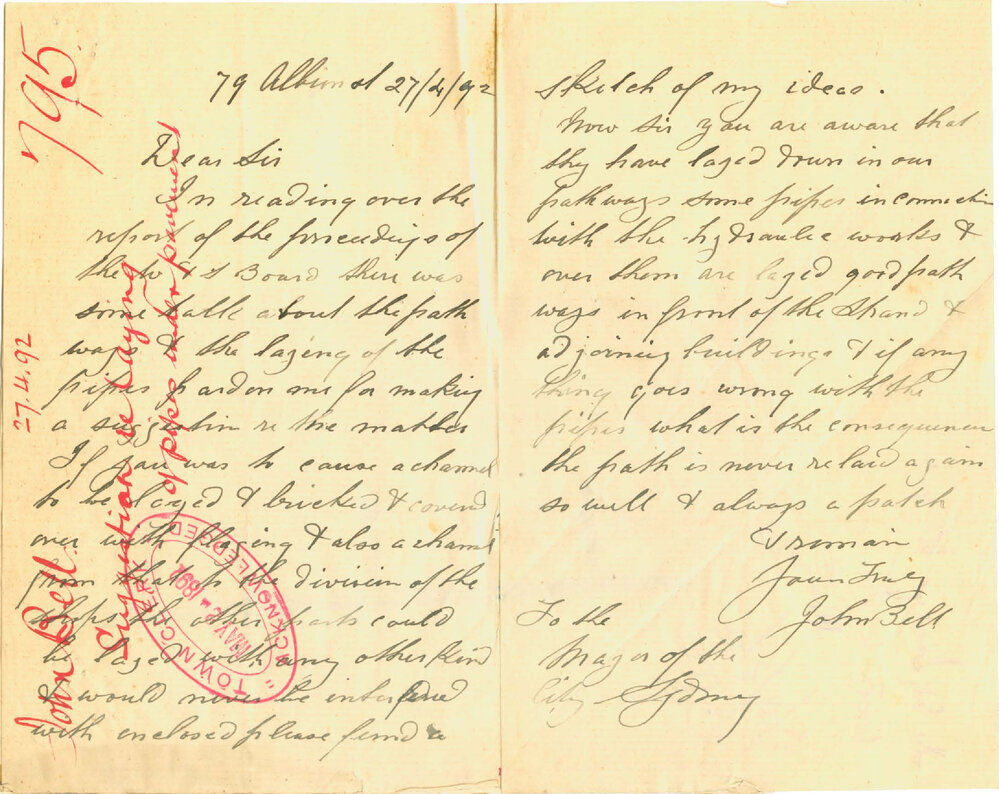 795
79 Albion st 27/4/92
Dear Sir
In reading over the
report of the proceedings of
the W & S Board there was
some talk about the path
ways & the laying of the
pipes pardon me for making
a suggestion re the matter
If you was to cause a channel
to be layed & bricked & covered
over with flaging & also a channel
from that to the division of the
shops the other parts could
be layed with any other kind
& would never be interfered
with enclosed please find a
sketch of my ideas.
Now Sir you are aware that
they have layed down in our
pathways some pipes in connection
with the hydraulic works &
over them are layed good path
ways in front of the Strand &
adjoining buildings & if any
thing goes wrong with the
pipes what is the consequence
the path is never relaid again
so well & always a patch
I remain
Yours Truly
John Bell
To the
Mayor of the
City Sydney
27.4.92
John Bell.
Suggestion re laying
of pipes under pavement
"TOWN CLERK
MAY 1892
ACKNOWLEDGED